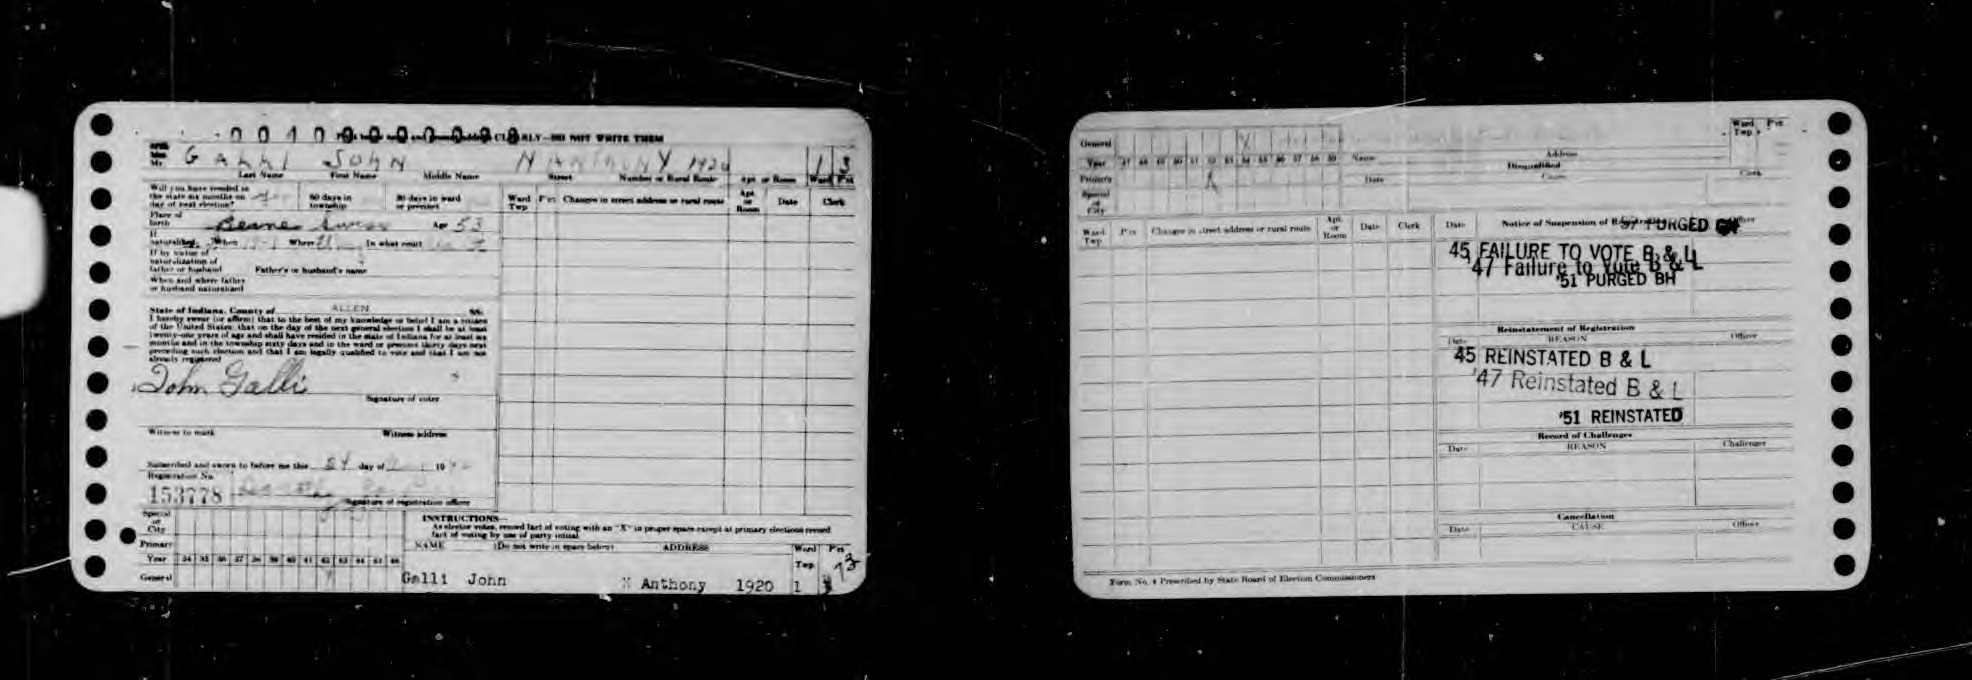 0010900009 8
CLEARLY—DO NOT WRITE THEM
Mr. Galli John N Anthony 1920 1 3
Last Name First Name Middle Name Street Number or Rural Route Apt or Room Ward Pct
Will you have resided in the state six months on day of next election?
60 days in township
30 days in ward or precinct
Ward Twp Pct Changes in street address or rural route Apt or Room Date Clerk
Place of birth Berne Age 53
If naturalized, When Where In what court
If by virtue of naturalization of father or husband Father's or husband's name
When and where father or husband naturalized
State of Indiana, County of ALLEN SS:
I hereby swear (or affirm) that to the best of my knowledge or belief I am a citizen
of the United States; that on the day of the next general election I shall be at least
twenty-one years of age and shall have resided in the state of Indiana for at least six
months and in the township sixty days and in the ward or precinct thirty days next
preceding such election and that I am legally qualified to vote and that I am not
already registered
John Galli
Signature of voter
Witness to mark Witness address
Subscribed and sworn to before me this 24 day of 19
Registration No.
153778
Signature of registration officer
Special or City
Primary
Year 34 35 36 37 38 39 40 41 42 43 44 45 46
General
INSTRUCTIONS—
As elector votes, record fact of voting with an "X" in proper space except at primary elections record
fact of voting by use of party initial
NAME (Do not write in space below) ADDRESS Ward Twp Pct
Galli John N Anthony 1920 1 73
General
Year 47 48 49 50 51 52 53 54 55 56 57 58 59
Primary
Special or City
Name Address Ward Twp. Pct
Disqualified
Date Cause Clerk
Ward Twp Pct Changes in street address or rural route Apt. or Room Date Clerk
Date Notice of Suspension of Registration Officer
57 PURGED
45 FAILURE TO VOTE B & L
'47 Failure to Vote B & L
'51 PURGED BH
Reinstatement of Registration
Date REASON Officer
45 REINSTATED B & L
'47 Reinstated B & L
'51 REINSTATED
Record of Challenges
Date REASON Challenger
Cancellation
Date CAUSE Officer
Form No. 4 Prescribed by State Board of Election Commissioners